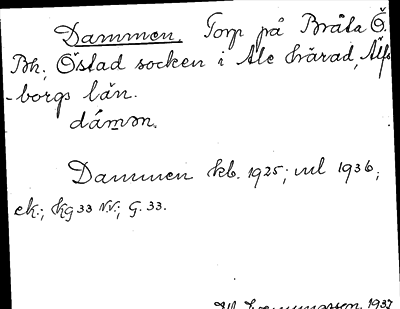 Dammen. Torp på Bråta Ö.
Bh., Östad socken i Ale härad, Älfs
-borgs län.
dámən.
Dammen kb. 1925; vl 1936;
ek.; kg 33 N.V.; G. 33.
1937